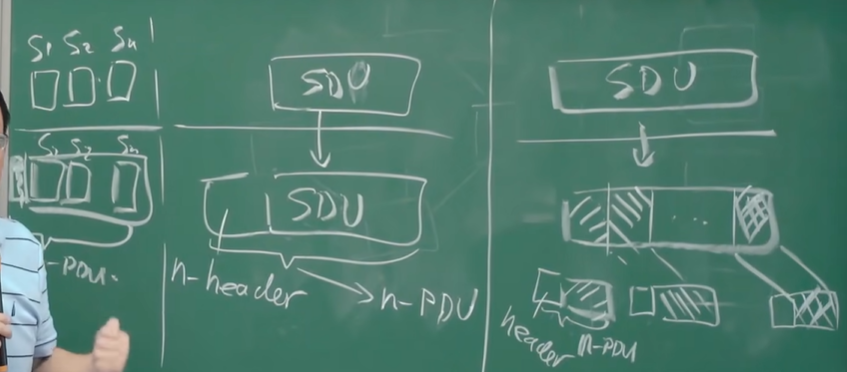 S1 S2 Sn
S1 S2 Sn
-PDU.
SDU
SDU
n-header
n-PDU
SDU
...
header
n-PDU